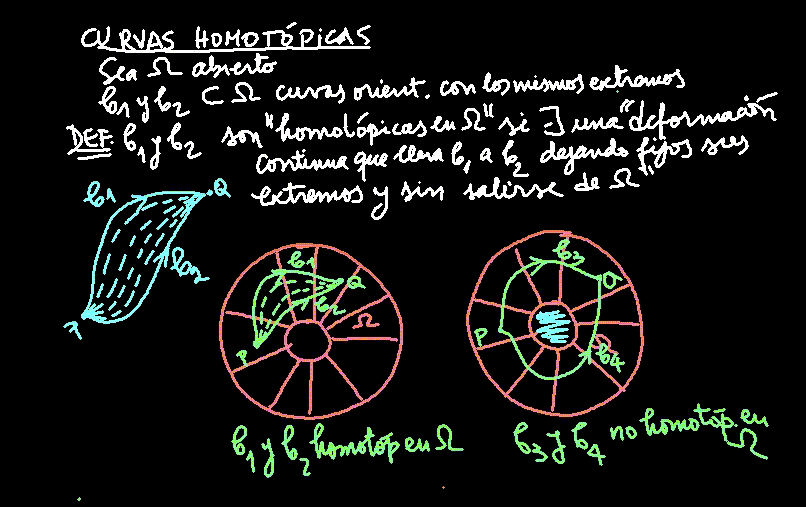 CURVAS HOMOTÓPICAS
Sea Ω abierto
C1 y C2 ⊂ Ω curvas orient. con los mismos extremos
DEF: C1 y C2 son "homotópicas en Ω" si ∃ una "deformación
continua que lleva C1 a C2 dejando fijos sus
extremos y sin salirse de Ω"
C1
Q
C2
P
C1
Q
C2
Ω
P
C3
Q
P
C4
C1 y C2 homotóp en Ω
C3 y C4 no homotóp. en
Ω